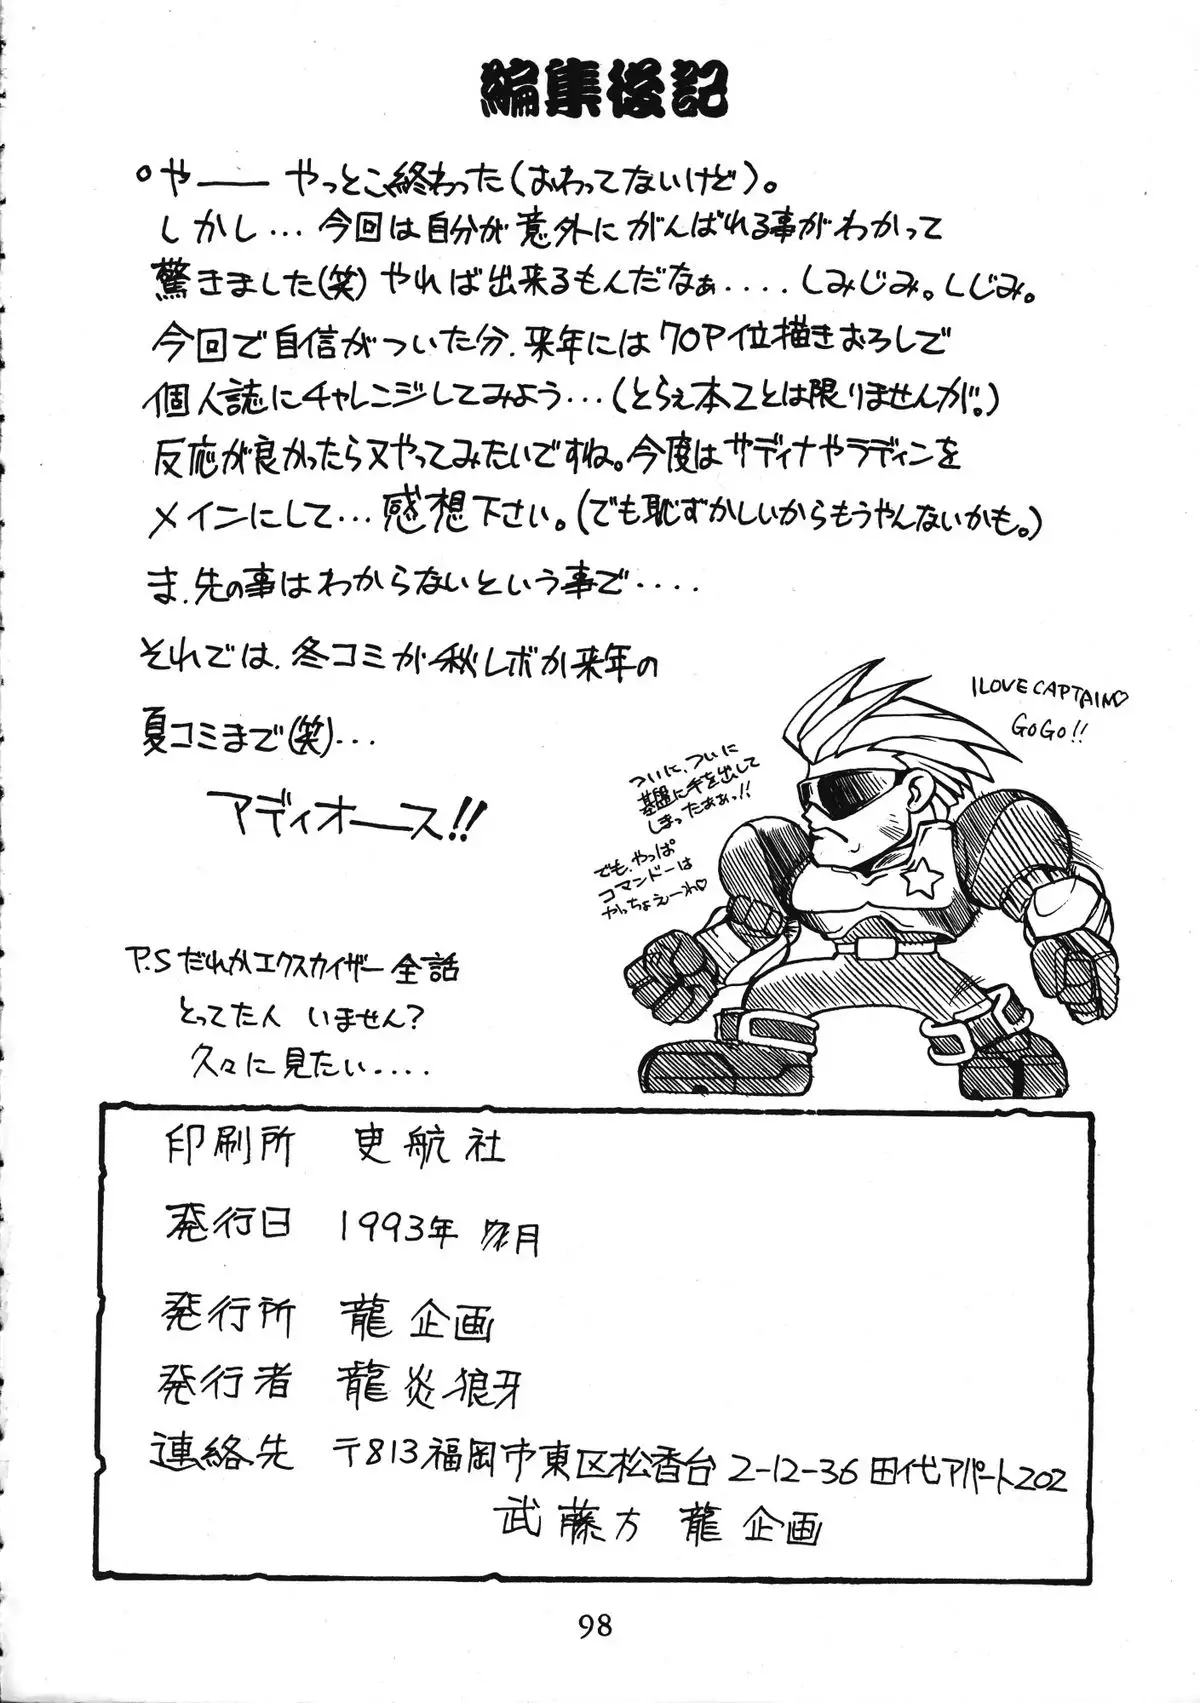 編集後記
。やーー やっとこ終わった(おわってないけど)。
しかし…今回は自分が意外にがんばれる事がわかって
驚きました(笑)やれば出来るもんだなぁ....しみじみ。しじみ。
今回で自信がついた分、来年には70P位描きおろしで
個人誌にチャレンジしてみよう…(とらぇ本とは限りませんが。)
反応が良かったら又やってみたいですね。今度はサディナやラディンを
メインにして…感想下さい。(でも恥ずかしいからもうやんないかも。)
ま、先の事はわからないという事で....
それでは、冬コミか秋レボか来年の
夏コミまで(笑)…
アディオース!!
I LOVE CAPTAIN♡
GOGO!!
ついに、ついに
基盤に手を出して
しまったぁぁっ!!
でも、やっぱ
コマンドーは
やっちょえーわ♡
P.Sだれかエクスカイザー全話
とってた人 いません?
久々に見たい....
印刷所 史航社
発行日 1993年 月
発行所 龍企画
発行者 龍炎狼牙
連絡先 〒813福岡市東区松香台2-12-36田代アパート202
武藤方 龍企画
98